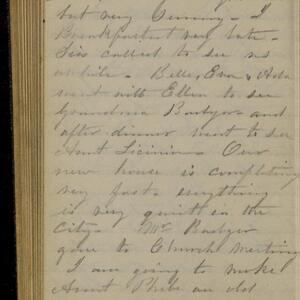 but very Cunning - I
Breakfasted very late -
Sis called to see us
awhile - Belle, Eva & Ada
went with Ellen to see
Grandma Badger and
after dinner went to see
Aunt Licinia - Our
new house is completing
very fast - everything
is very quiet in the
City - Mr Badger
gone to Church meeting
I am going to make
Aunt Phebe an old